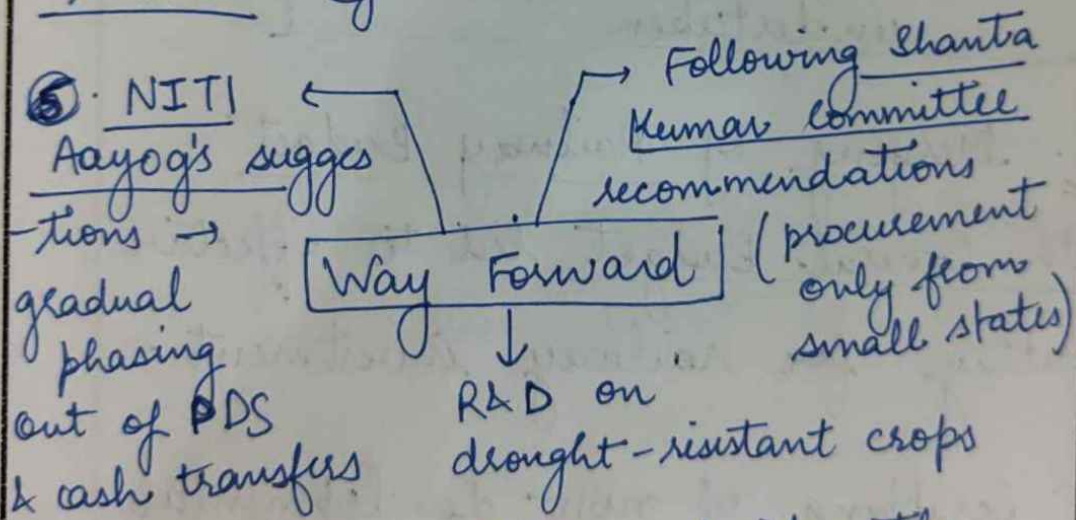 5. NITI
Aayog's sugges
-tions →
gradual
phasing
out of PDS
& cash transfers
Following Shanta
Kumar Committee
recommendations
(procurement
only from
small states)
Way Forward
R&D on
drought-resistant crops